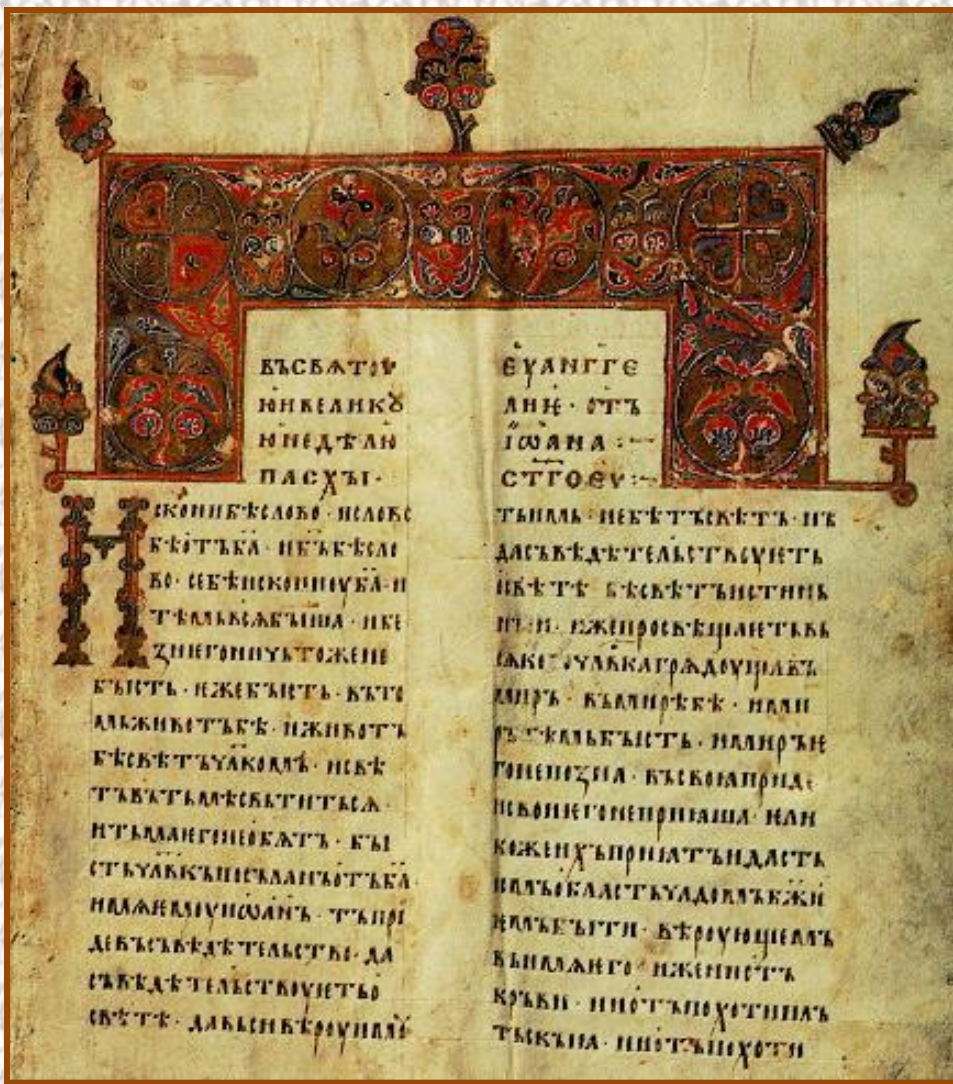 ВЪСВѦТОУ
ЮИВЕЛИКꙋ
ЮНЕДѢЛЮ
ПАСХꙐ·
ИСКОНИБѢСЛОВО· ИСЛОВО
БѢОТЪБА· ИБЪБѢСЛО
ВО· СЕБѢИСКОНИОУБА· И
ТѢМЬВСꙗБꙐША· ИБЕ
ЗНИЕГОНИЧЬТОЖЕНЕ
БꙐСТЬ· ИЖЕБꙐСТЬ· ВЪТО
МЬЖИВОТЪБѢ· ИЖИВОТЪ
БѢСВѢТЪЧЛКОМЪ· ИСВѢ
ТЪВЪТЬМѢСВЬТИТЬСѦ·
ИТЬМАѥГОНЕОБѦТЪ· БꙐ
СТЬЧЛВКЪПОСЪЛАНЪОТЪБА·
ИМѦѤМОУИѠАНЪ· ТЪПРI
ДЕВЪСЪВѢДѢТЕЛЬСТВО· ДА
СЪВѢДѢТЕЛЬСТВОУѤТЬО
СВѢТѢ· ДАВЬСИВѢРОУИМОУ
ЕУАНГГЕ
ЛИѤ· ОТЪ
IѠАНА :~
СТГОЕУ:~
ТЬИМЬ· НЕБѢТЪСВѢТЪ· НЪ
ДАСЪВѢДѢТЕЛЬСТВОУѤТЬ
ОСВѢТѢ БѢСВѢТЪИСТИНЬ
НЪИ· ИЖЕПРОСВѢЩАѤТЬВЬ
СꙗКОГОЧЛВКАГРѦДОУЩАВЪ
МИРЪ· ВЪМИРѢБѢ· ИМИ
РЪТѢМЬБꙐСТЬ· ИМИРЪѤ
ГОНЕПОЗНА· ВЪСВОꙗПРИДЕ
ИСВОИѤГОНЕПРИꙗША· ѤЛИ
КОЖЕИХЪПРИꙗТЪИДАСТЬ
ИМЪОБЛАСТЬЧАДОМЪБЖИ
ѤМЪБꙐТИ· ВѢРОУЮЩЕМЪ
ВЪИМѦѤГО· ИЖЕНИОТЪ
КРЪВИ· НИОТЪПОХОТИПЛЪ
ТЬСКꙐꙗ· НИОТЪПОХОТИ